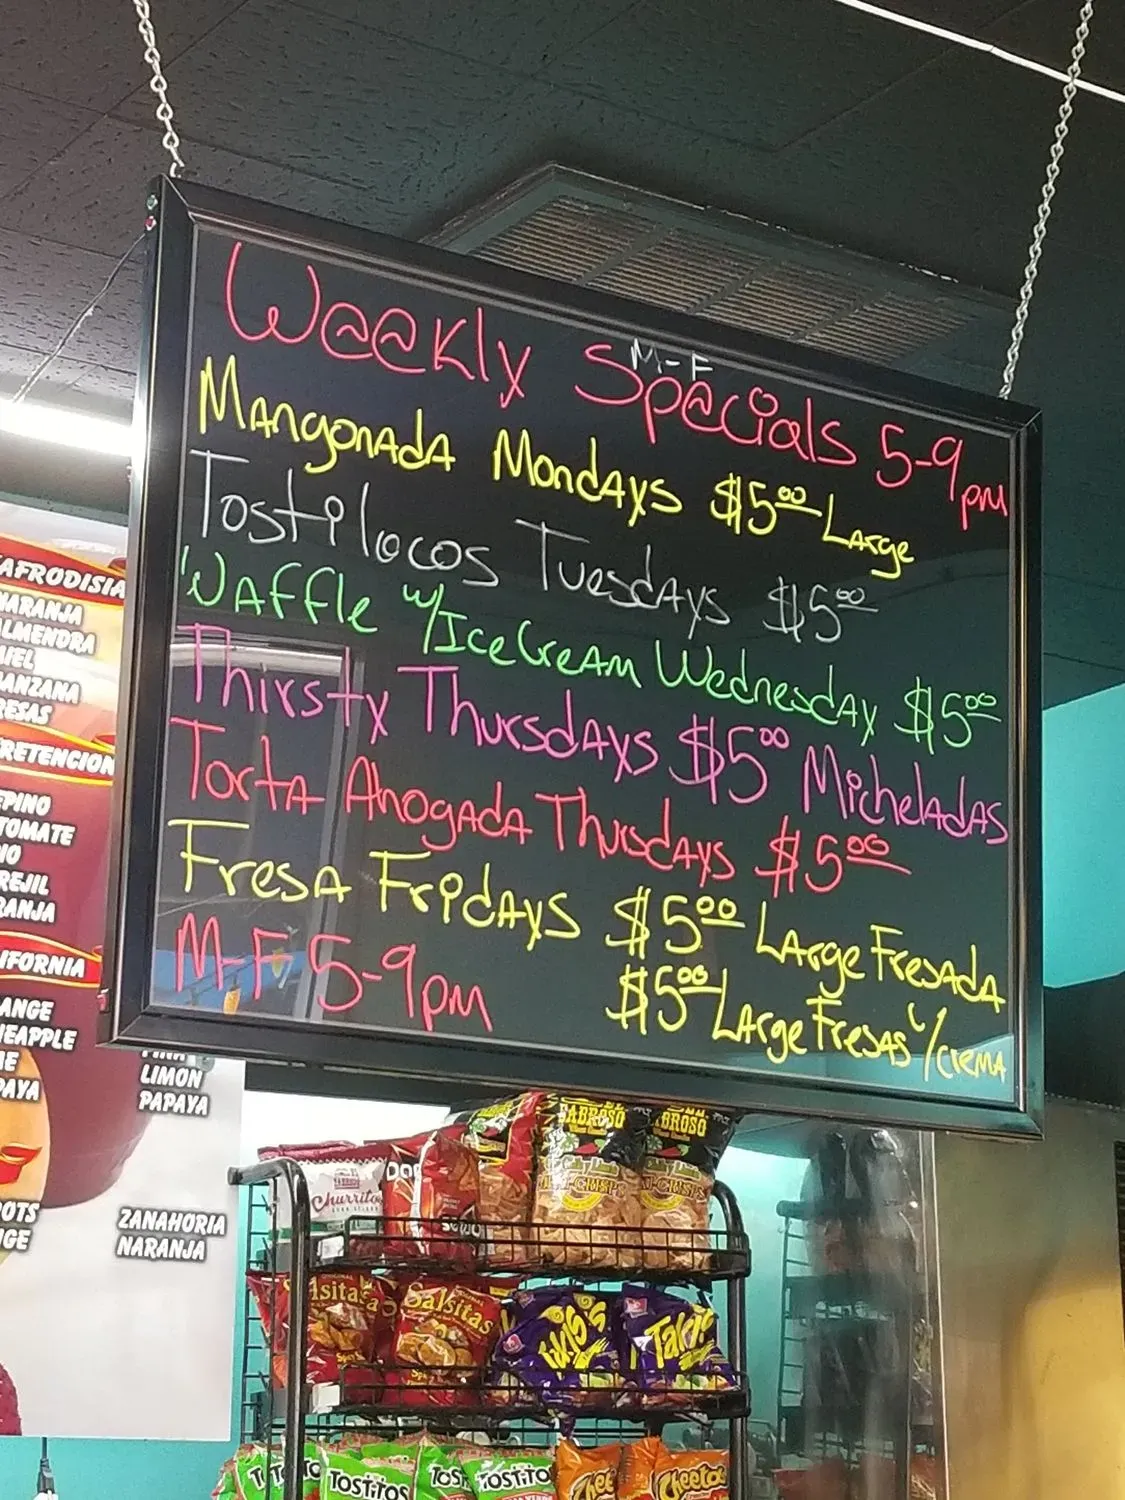 Weekly Specials 5-9pm
M-F
Mangonada Mondays $5.00 Large
Tostilocos Tuesdays $5.00
Waffle w/Ice Cream Wednesday $5.00
Thirsty Thursdays $5.00 Micheladas
Torta Ahogada Thursdays $5.00
Fresa Fridays $5.00 Large Fresada
M-F 5-9pm $5.00 Large Fresas w/crema
AFRODISIA
NARANJA
ALMENDRA
MIEL
MANZANA
RESAS
RETENCION
EPINO
TOMATE
REJIL
RANJA
IFORNIA
ANGE
NEAPPLE
PAYA
LIMON
PAPAYA
OTS
GE
ZANAHORIA
NARANJA
FABROSO
BROSO
Churrito
DO
Salsitas
Salsitas
Takis
Takis
TOSTITOS
TOST
TOSTITO
Chee
Cheetos